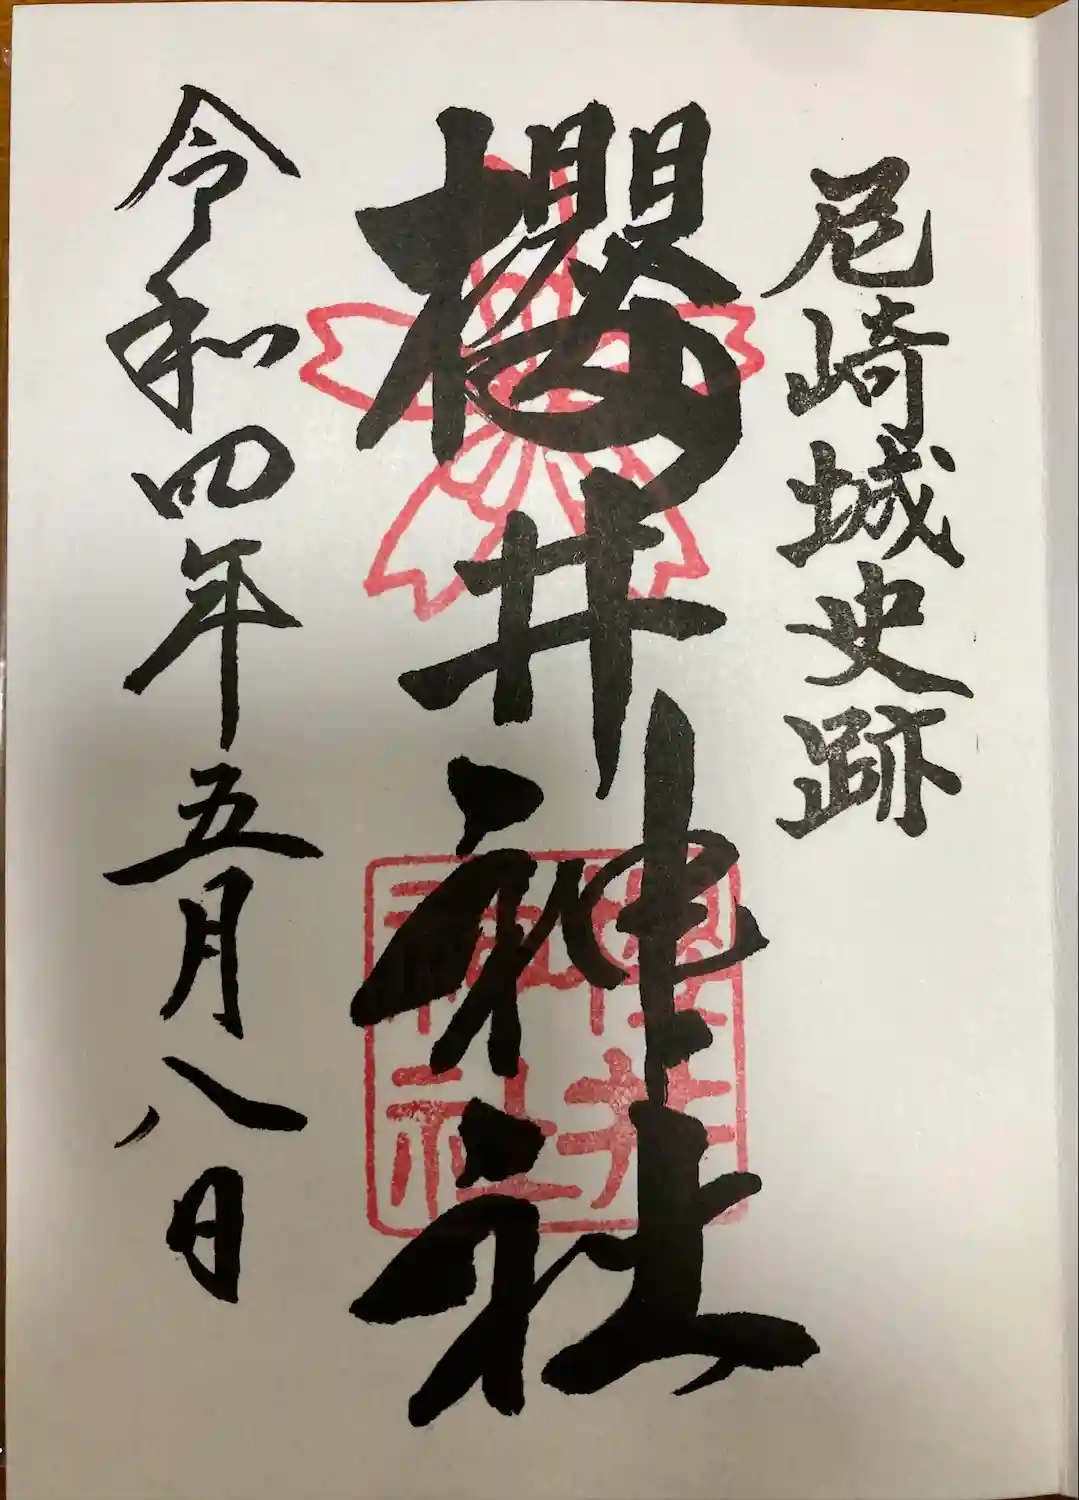 尼崎城史跡
櫻井神社
櫻井
神社
令和四年五月八日